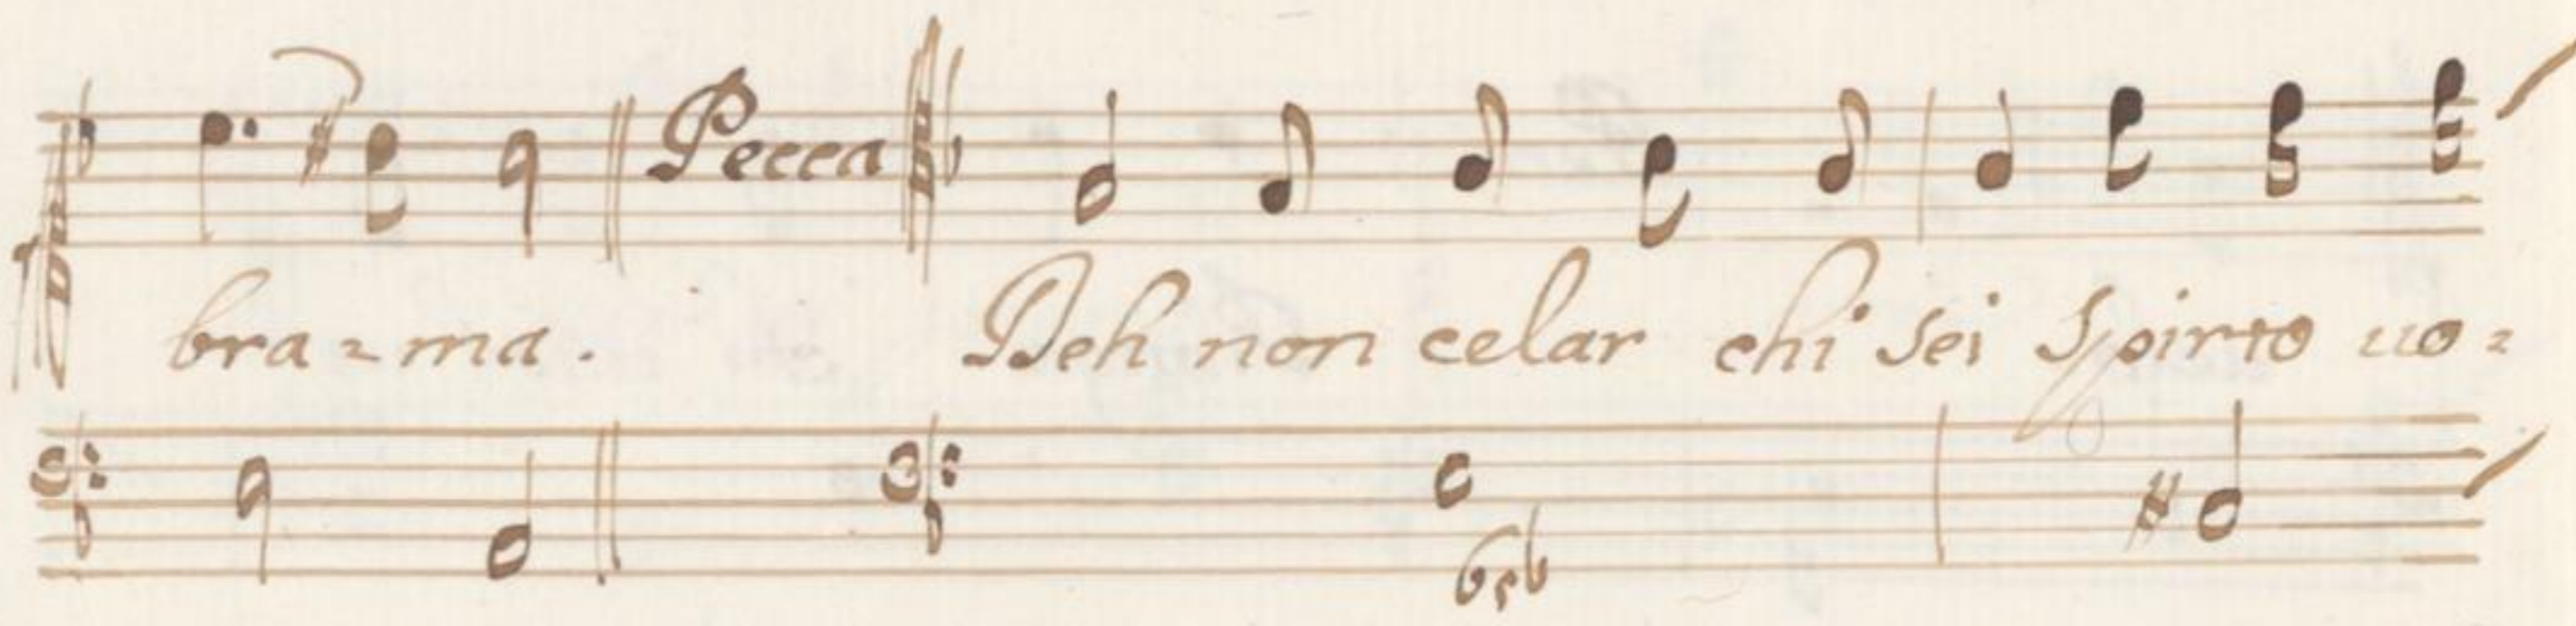 Pecca
bra=ma. Deh non celar chi sei Spirto uo=
6 b